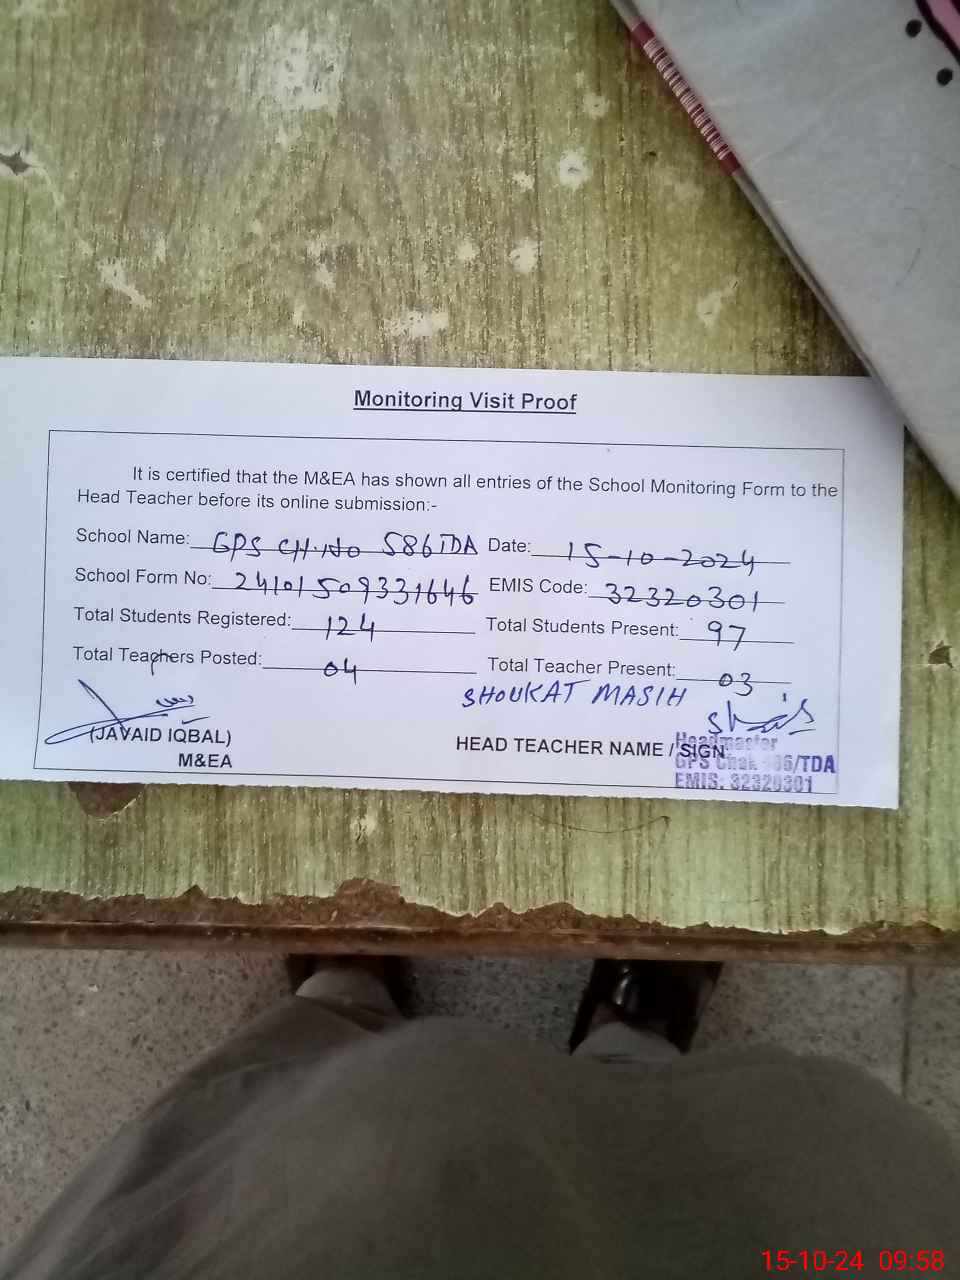 Monitoring Visit Proof
It is certified that the M&EA has shown all entries of the School Monitoring Form to the
Head Teacher before its online submission:-
School Name: GPS CH.No 586TDA Date: 15-10-2024
School Form No: 24101509331646 EMIS Code: 32320301
Total Students Registered: 124 Total Students Present: 97
Total Teachers Posted: 04 Total Teacher Present: 03
SHOUKAT MASIH
(JAVAID IQBAL) HEAD TEACHER NAME / SIGN
M&EA
Headmaster
GPS Chak 86/TDA
EMIS: 32320301
15-10-24 09:58